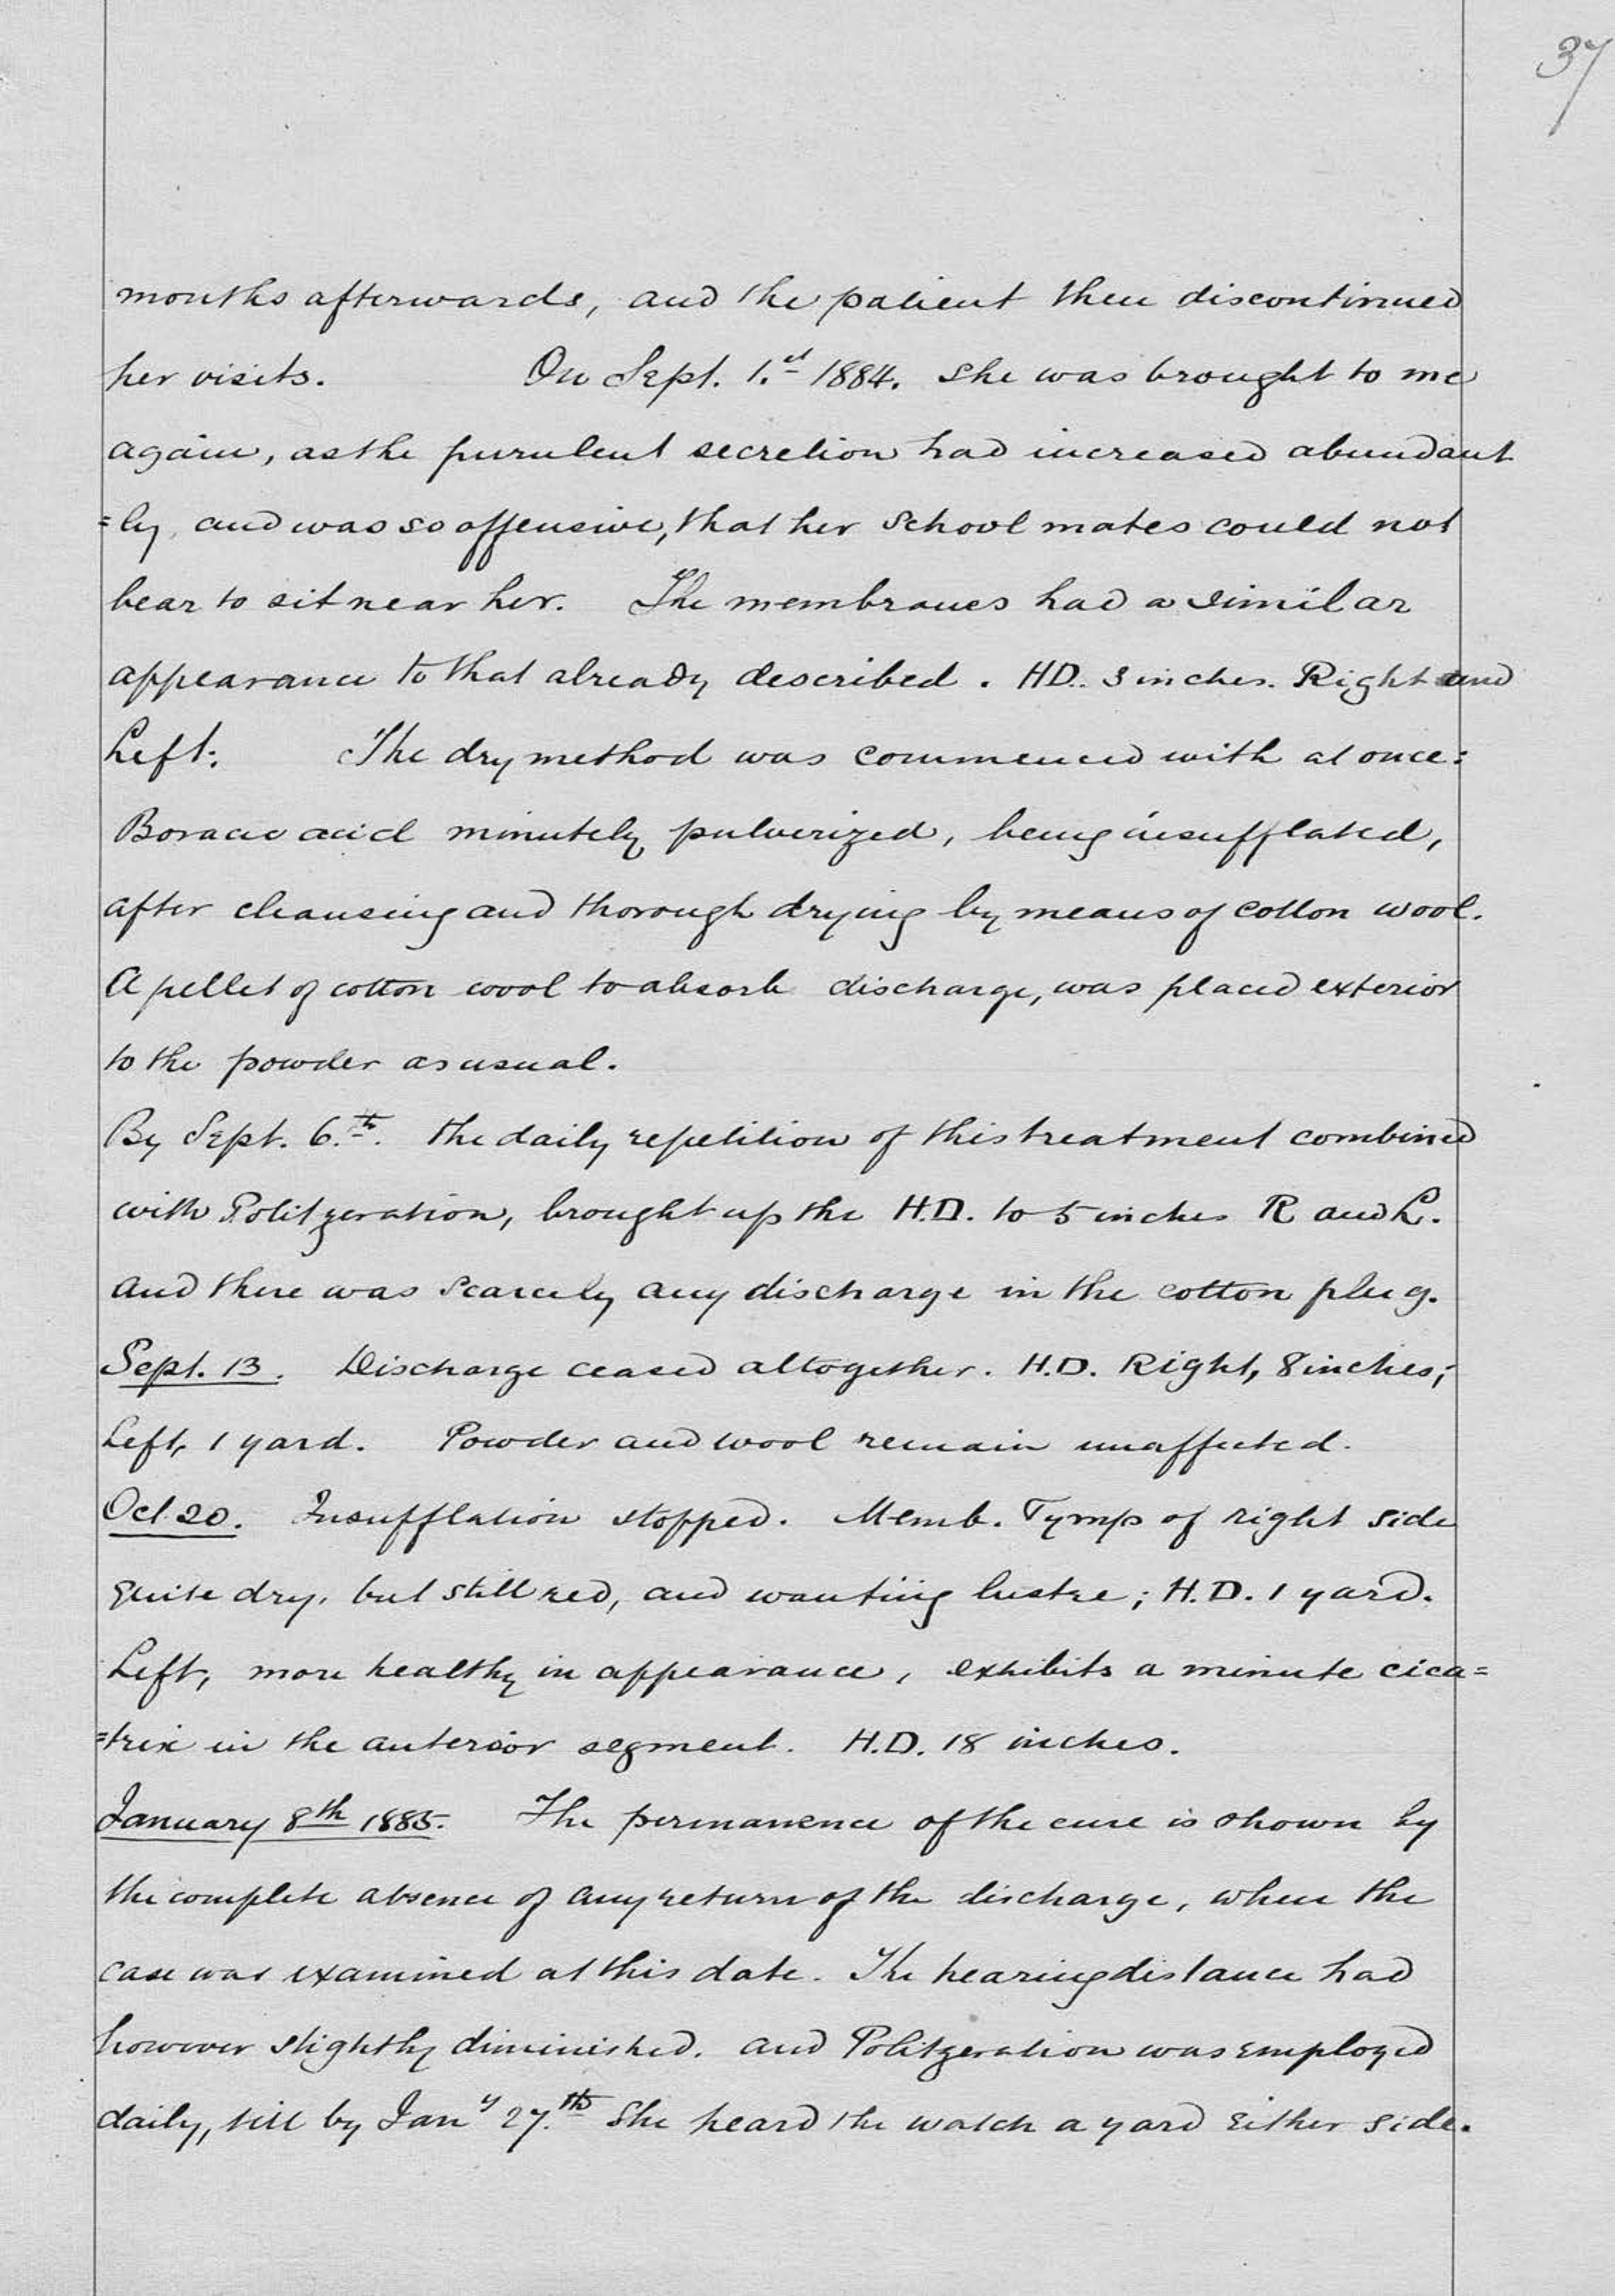 37
months afterwards, and the patient then discontinued
her visits. On Sept. 1.st 1884. she was brought to me
again, as the purulent secretion had increased abundant
=ly, and was so offensive, that her school mates could not
bear to sit near her. The membranes had a similar
appearance to that already described. HD. 3 inches. Right and
Left. The dry method was commenced with at once:
Boracic acid minutely pulverized, being insufflated,
after cleansing and thorough drying by means of cotton wool.
A pellet of cotton wool to absorb discharge, was placed exterior
to the powder as usual.
By Sept. 6.th. the daily repetition of this treatment combined
with Politzeration, brought up the H.D. to 5 inches R and L.
and there was scarcely any discharge in the cotton plug.
Sept. 13. Discharge ceased altogether. H.D. Right, 8 inches;
Left, 1 yard. Powder and wool remain unaffected.
Oct. 20. Insufflation stopped. Memb. Tymp of right side
quite dry, but still red, and wanting lustre; H.D. 1 yard.
Left, more healthy in appearance, exhibits a minute cica=
=trix in the anterior segment. H.D. 18 inches.
January 8th 1885. The permanence of the cure is shown by
the complete absence of any return of the discharge, when the
case was examined at this date. The hearing distance had
however slightly diminished. and Politzeration was employed
daily, till by Jany 27.th she heard the watch a yard either side.